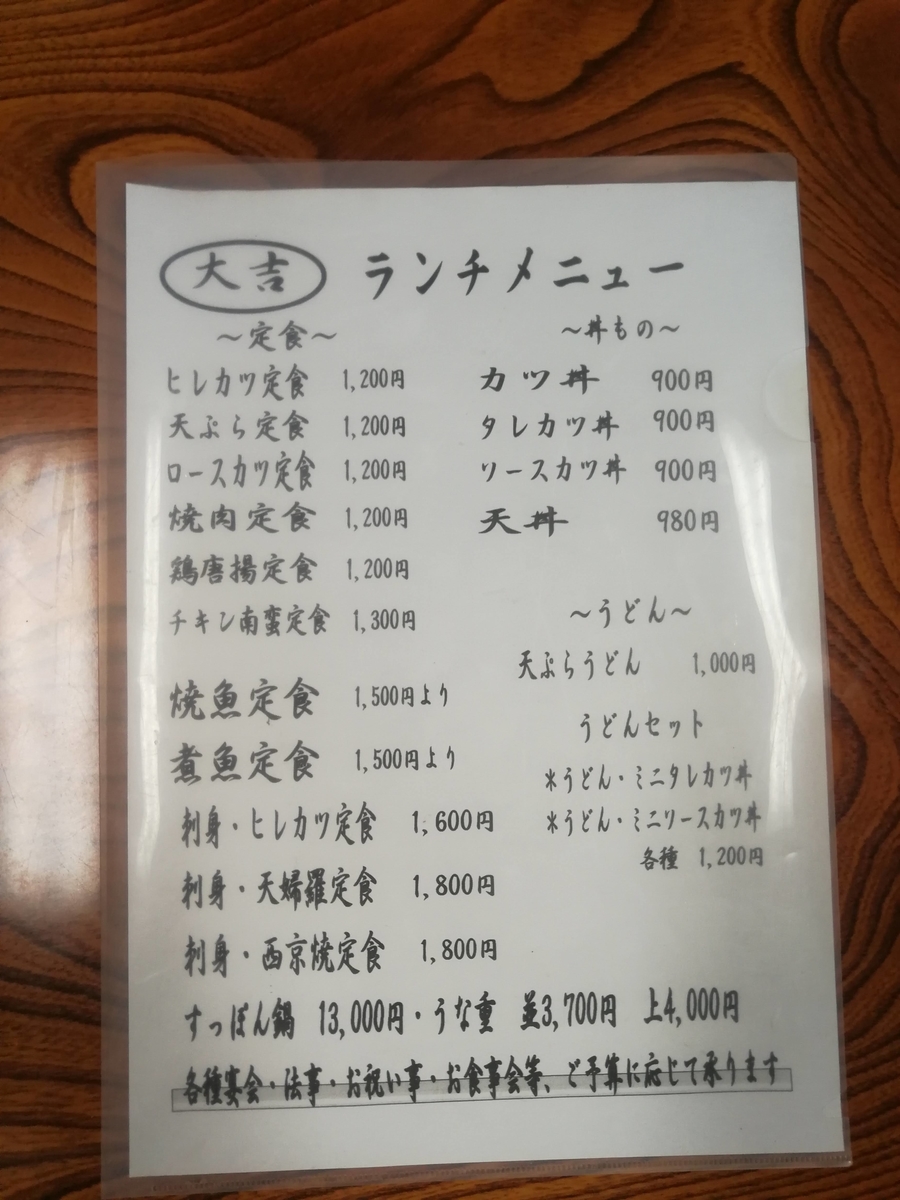 大吉 ランチメニュー
～定食～
ヒレカツ定食 1,200円
天ぷら定食 1,200円
ロースカツ定食 1,200円
焼肉定食 1,200円
鶏唐揚定食 1,200円
チキン南蛮定食 1,300円
焼魚定食 1,500円より
煮魚定食 1,500円より
刺身・ヒレカツ定食 1,600円
刺身・天婦羅定食 1,800円
刺身・西京焼定食 1,800円
～丼もの～
カツ丼 900円
タレカツ丼 900円
ソースカツ丼 900円
天丼 980円
～うどん～
天ぷらうどん 1,000円
うどんセット
*うどん・ミニタレカツ丼
*うどん・ミニソースカツ丼
各種 1,200円
すっぽん鍋 13,000円・うな重 並3,700円 上4,000円
各種宴会・法事・お祝い事・お食事会等、ご予算に応じて承ります